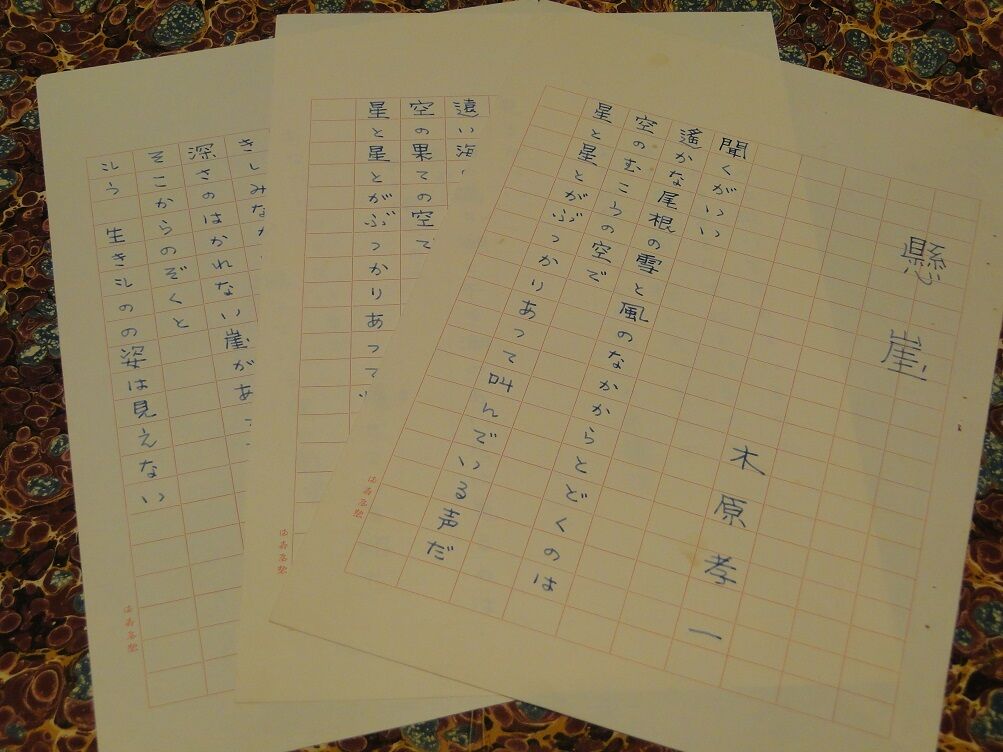 懸崖
木原孝一
聞くがいい
遙かな尾根の雪と風のなかからとどくのは
空のむこうの空で
星と星とがぶつかりあって叫んでいる声だ
遠い海
空の果ての空で
星と星とがぶつかりあって
きしみなが
深さのはかれない崖があっ
そこからのぞくと
生きものの姿は見えない